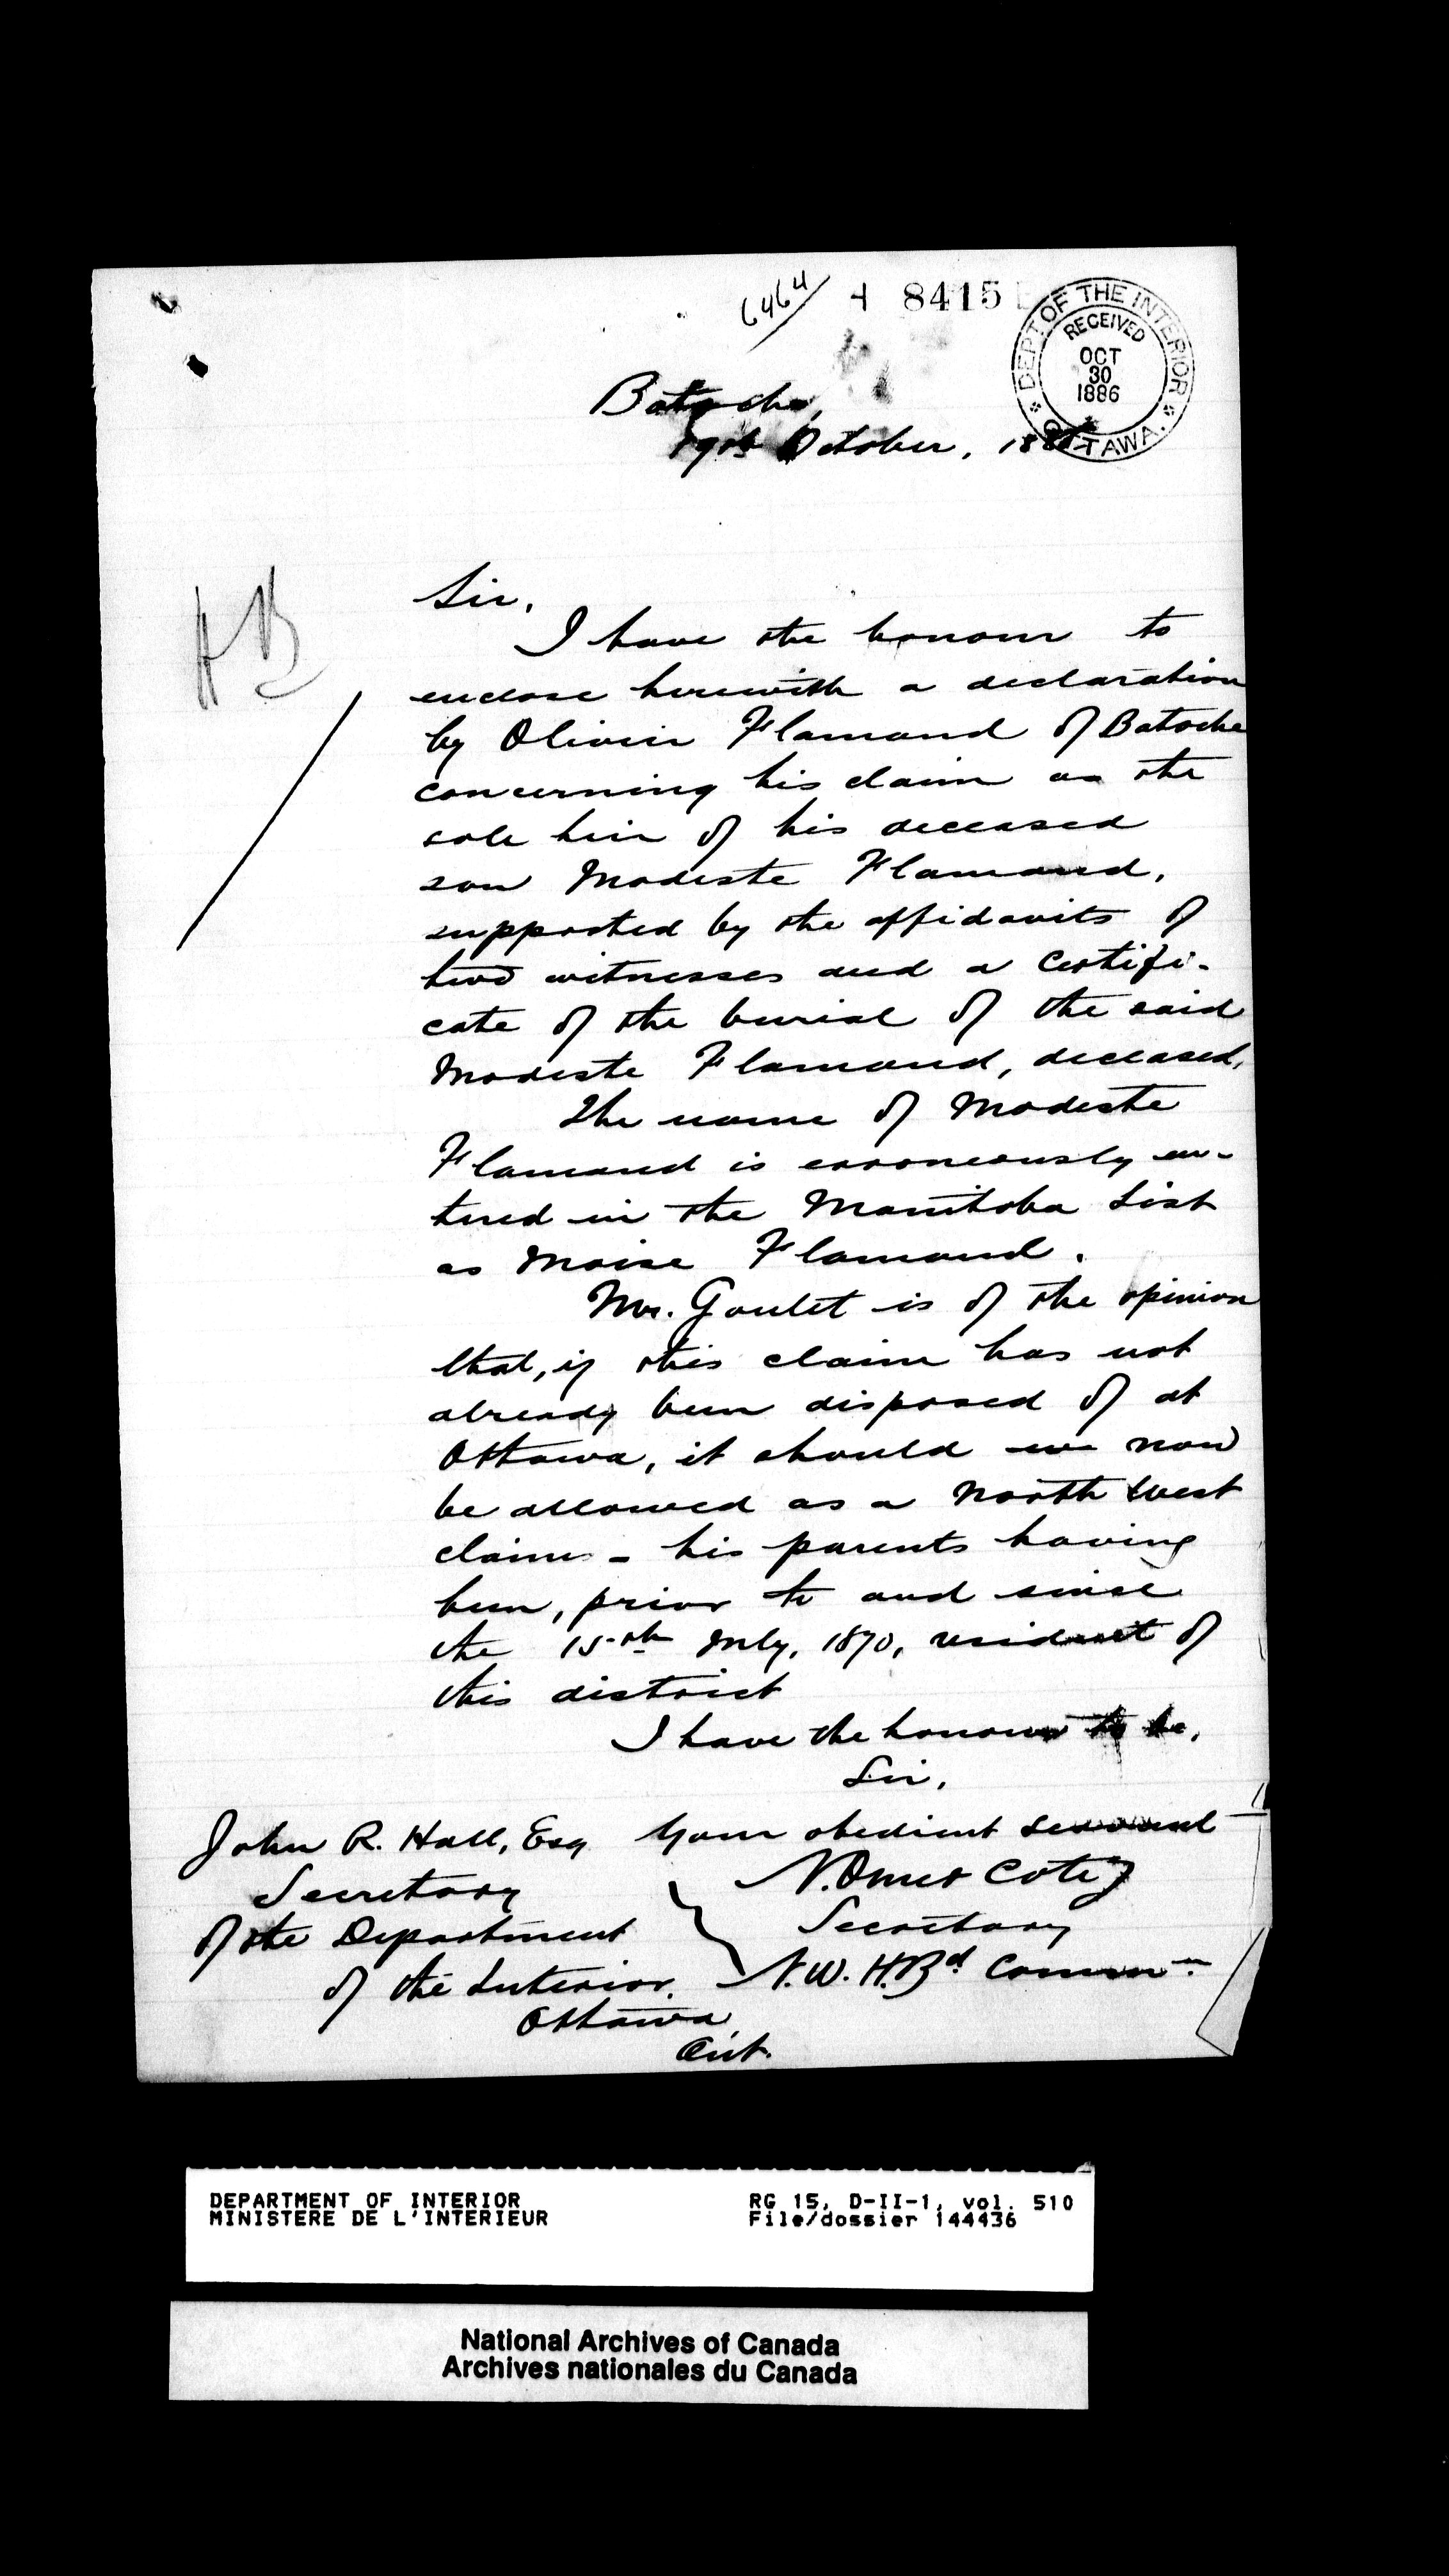 6464
8415
DEPT OF THE INTERIOR
RECEIVED
OCT
30
1886
OTTAWA.
Batoche,
October, 188
HB
Sir,
I have the honour to
enclose herewith a declaration
by Olivier Flamand of Batoche
concerning his claim as the
sole heir of his deceased
son Modeste Flamand,
supported by the affidavits of
two witnesses and a Certifi-
cate of the burial of the said
Modeste Flamand, deceased,
The name of Modeste
Flamand is erroneously en-
tered in the Manitoba List
as Moise Flamand.
Mr. Goulet is of the opinion
that, if this claim has not
already been disposed of at
Ottawa, it should now
be allowed as a North West
claim - his parents having
been, prior to and since
the 15th July, 1870, resident of
this district
I have the honour to be,
Sir,
Your obedient servant
John R. Hall, Esq
N. Omer Coté
Secretary
Secretary
of the Department
N.W. H.Bd Commn.
of the Interior.
Ottawa,
Ont.
DEPARTMENT OF INTERIOR
MINISTERE DE L'INTERIEUR
RG 15, D-II-1, vol. 510
File/dossier 144436
National Archives of Canada
Archives nationales du Canada